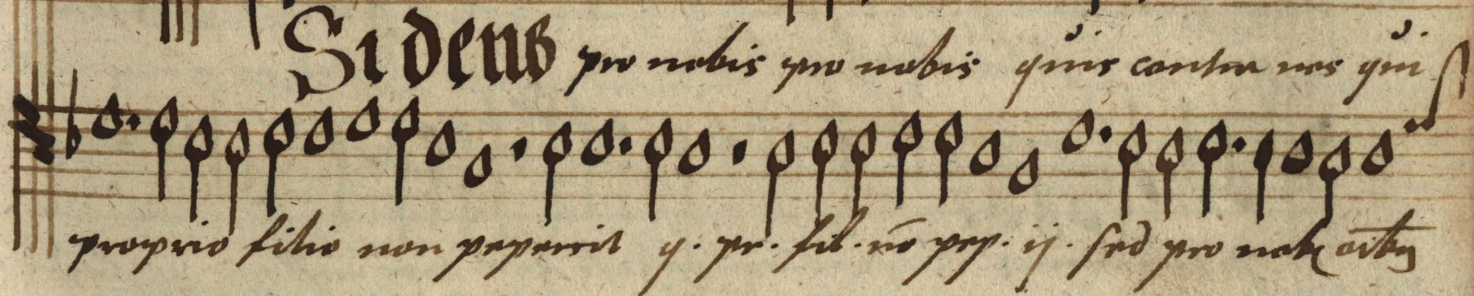 Si deus pro nobis pro nobis quis contra nos qui
proprio filio non pepercit ij. pr. fil. nō pep. ij. sed pro nob oīb